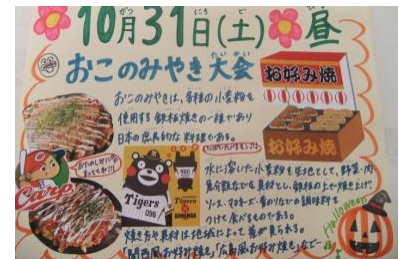 10月31日(土) 昼
がつ にち ど ひる
おこのみやき大会
たいかい
お好み焼
おこのみやきは、各種の小麦粉を
使用する鉄板焼きの一種であり
日本の庶民的な料理である。
お好み焼
Carp
Tigers
096
Tigers
KUMAMON
水に溶いた小麦粉を生地として、野菜・肉
魚介類などを具材とし、鉄板の上で焼き上げ
ソース・マヨネーズ・青のりなどの調味料を
つけて食べるものである。
焼き方や具材は地域によって差が見られる。
「関西風お好み焼き」「広島風お好み焼き」など…
Halloween